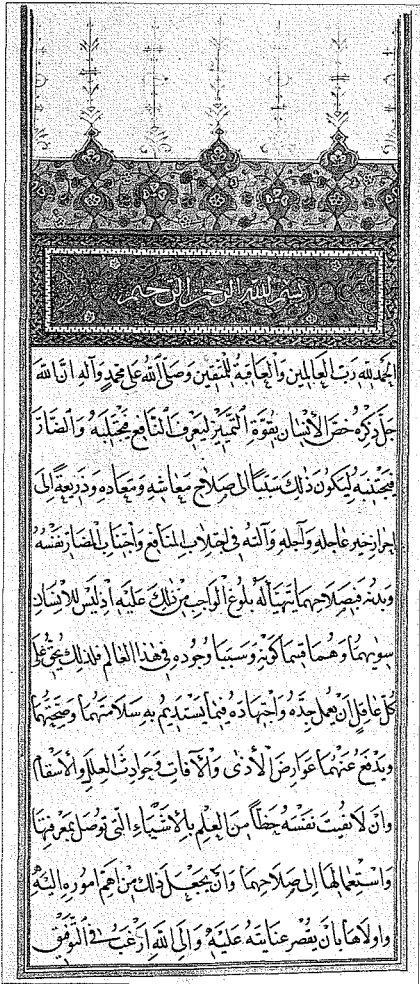 بسم الله الرحمن الرحيم
الحمد لله رب العالمين والعاقبة للمتقين وصلى الله على محمد وآله ان الله
جل ذكره خص الانسان بقوة التمييز ليعرف النافع فيجتلبه والضار
فيجتنبه ليكون ذلك سببا الى صلاح معاشه ومعاده وذريعة الى
احراز خير عاجله وآجله وآلته في اجتلاب المنافع واجتناب المضار نفسه
وبدنه فبصلاحهما يتهيأ له بلوغ الواجب من ذلك عليه اذ ليس للانسان
سويهما وهما قسما كونه وسببا وجوده في هذا العالم فلذلك يحق على
كل عاقل أن يعمل جده واجتهاده فيما يستديم به سلامتهما وصحتهما
ويدفع عنهما عوارض الأذى والآفات وحوادث العلل والأسقام
وان لا يفيت نفسه حظا من العلم بالأشياء التي توصل بمعرفتها
واستعمالها إلى صلاحهما وان يجعل ذلك من اهم اموره اليه
واولاها بان يقصر عنايته عليه والى الله ارغب في التوفيق